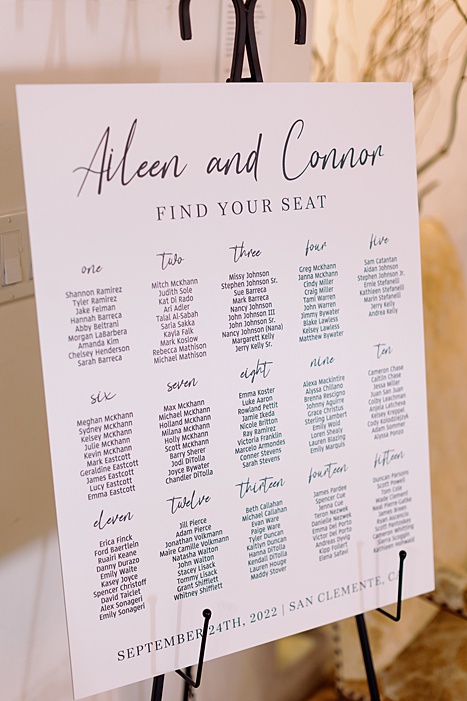 Aileen and Connor
FIND YOUR SEAT
one
Shannon Ramirez
Tyler Ramirez
Jake Felman
Hannah Barreca
Abby Beltrani
Morgan LaBarbera
Amanda Kim
Chelsey Henderson
Sarah Barreca
two
Mitch McKhann
Judith Sole
Kat Di Rado
Ari Adler
Talal Al-Sabah
Saria Sakka
Kayla Falk
Mark Koslow
Rebecca Mathison
Michael Mathison
three
Missy Johnson
Stephen Johnson Sr.
Sue Barreca
Mark Barreca
Nancy Johnson
John Johnson III
John Johnson Sr.
Nancy Johnson (Nana)
Margarett Kelly
Jerry Kelly Sr.
four
Greg McKhann
Janna McKhann
Cindy Miller
Craig Miller
Tami Warren
John Warren
Jimmy Bywater
Blake Lawless
Kelsey Lawless
Matthew Bywater
five
Sam Catantan
Aidan Johnson
Stephen Johnson Jr.
Ernie Stefanell
Kathleen Stefanell
Marin Stefanell
Jerry Kelly
Andrea Kelly
six
Meghan McKhann
Sydney McKhann
Kelsey McKhann
Julie McKhann
Kevin McKhann
Mark Eastcott
Geraldine Eastcott
James Eastcott
Lucy Eastcott
Emma Eastcott
seven
Max McKhann
Michael McKhann
Holland McKhann
Milana McKhann
Holly McKhann
Scott McKhann
Barry Sherer
Jodi DiTolla
Joyce Bywater
Chandler DiTolla
eight
Emma Koster
Luke Aaron
Rowland Pettit
Jamie Ikeda
Nicole Britton
Ray Ramirez
Victoria Franklin
Marcelo Armondes
Conner Stevens
Sarah Stevens
nine
Alexa Mackintire
Alyssa Chiliano
Brenna Rescigno
Johnny Aguirre
Grace Christus
Sterling Lambert
Emily Wold
Loren Shealy
Lauren Blazing
Emily Marquis
ten
Cameron Chase
Caitlin Chase
Jessa Miller
Juan San Juan
Colby Leachman
Anjela Latcheva
Kelsey Kreppel
Adam Jammer
Alyssa Ponzo
eleven
Erica Finck
Ford Baertlein
Ruairi Keane
Danny Durazo
Emily Waite
Kasey Joyce
Spencer Christoff
David Taiclet
Alex Sonageri
Emily Sonageri
twelve
Jill Pierce
Adam Pierce
Jonathan Volkmann
Maire Camille Volkmann
Natasha Walton
John Walton
Stacey Lisack
Tommy Lisack
Grant Shifflett
Whitney Shifflett
thirteen
Beth Callahan
Michael Callahan
Evan Ware
Paige Ware
Tyler Duncan
Kaitlyn Duncan
Hanna DiTolla
Kendall DiTolla
Lauren Houge
Maddy Stover
fourteen
James Pardee
Spencer Cue
Jenna Cue
Teron Nezwek
Danielle Nezwek
Emma Del Porto
Victor Del Porto
Andreas Dyvig
Kipp Follert
Elena Safavi
fifteen
Duncan Parsons
Scott Powell
Tom Cole
Wade Clement
James Brown
Kathleen Holwadl
SEPTEMBER 24TH, 2022 | SAN CLEMENTE, CA